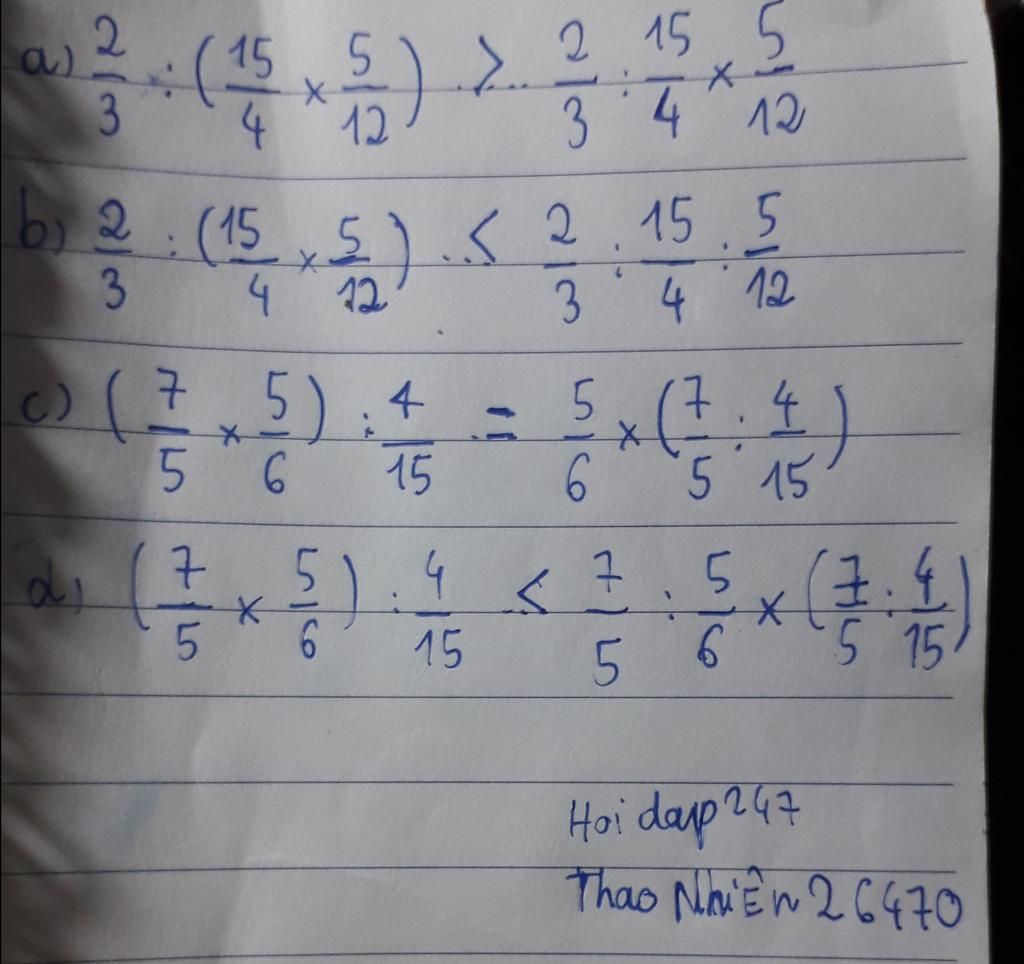 a) 2/3 : (15/4 × 5/12) ..>.. 2/3 : 15/4 × 5/12
b) 2/3 : (15/4 × 5/12) ..< 2/3 : 15/4 : 5/12
c) (7/5 × 5/6) : 4/15 .= 5/6 × (7/5 : 4/15)
d) (7/5 × 5/6) : 4/15 ..< 7/5 : 5/6 × (7/5 : 4/15)
Hoi dap 247
Thao Nhiên 26470